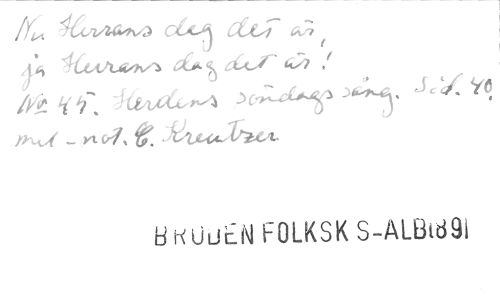 Nu Herrans dag det är,
ja Herrans dag det är!
No 45. Herdens söndagssång. Sid. 40.
mel-not. C. Kreutzer
BRODEN FOLKSK S-ALB1891